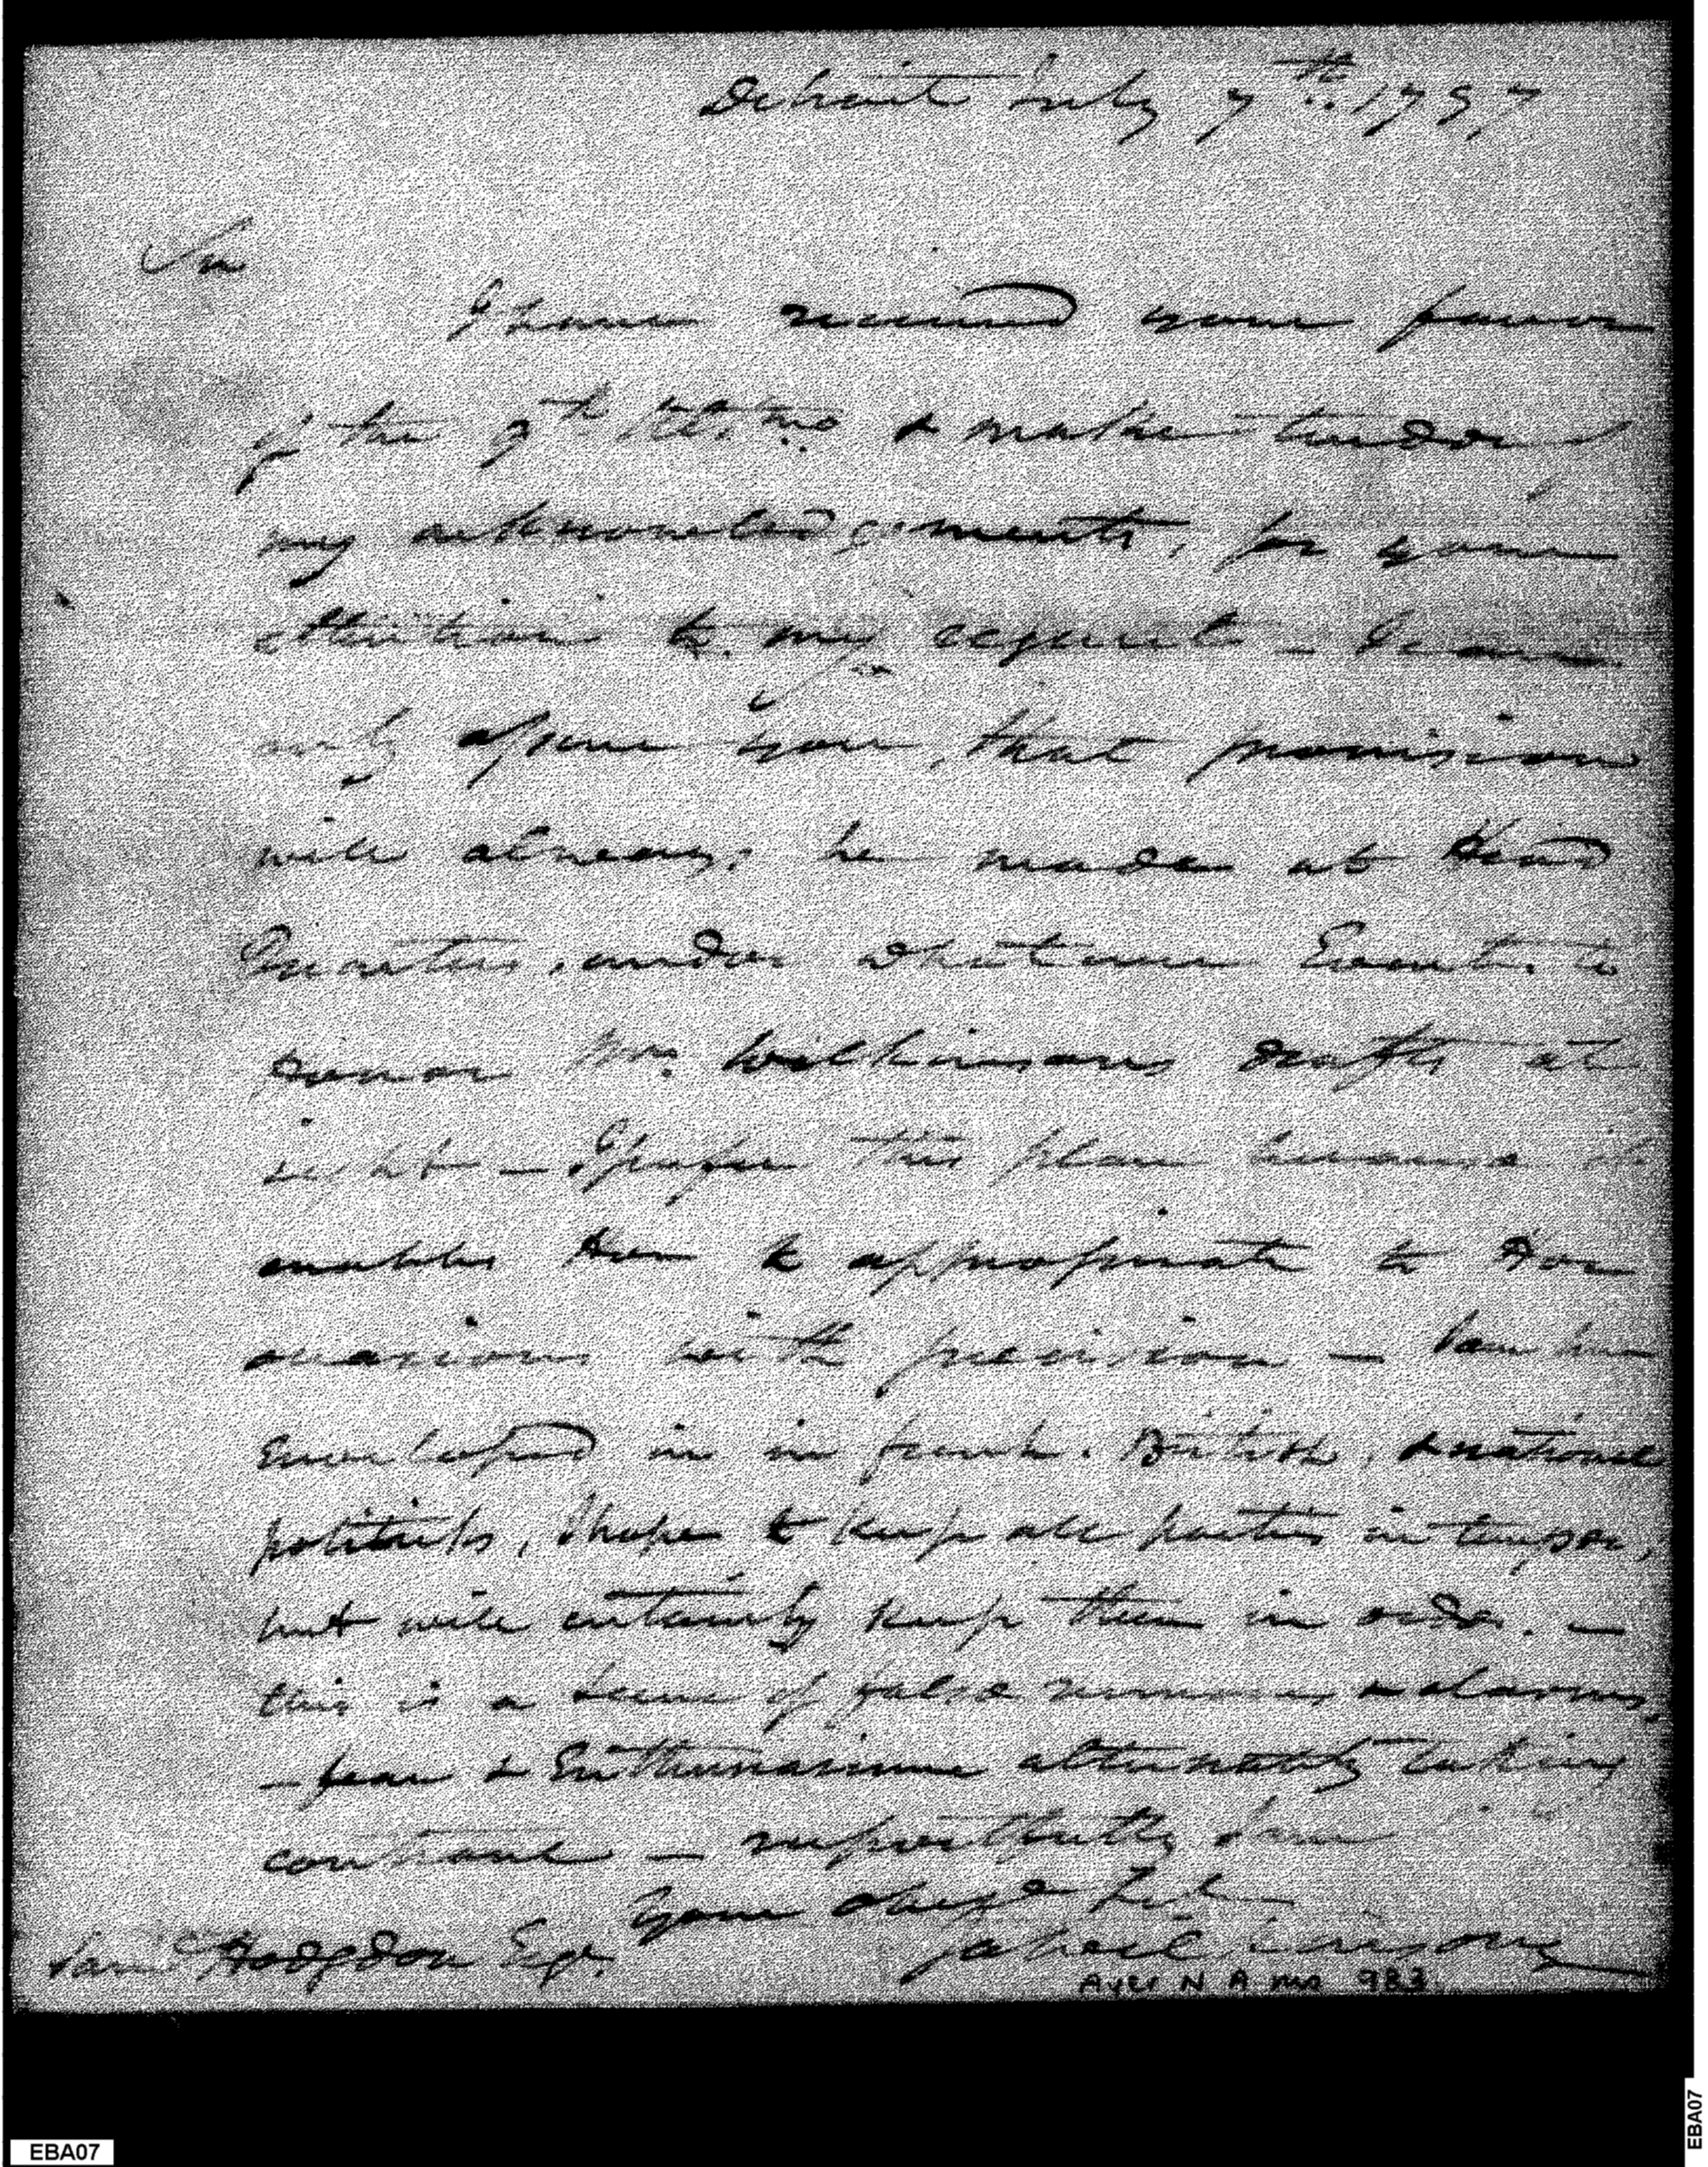 Detroit July 7th 1797
Sir
I have received your favor
of the 9th Ultmo & make tender
my acknowledgements, for your
attention to my request _ I can
only assure you, that provision
will always be made at Head
Quarters, under whatever Event, to
honor Mrs. Wilkinsons drafts at
sight _ I prefer this plan because it
enables Her to appropriate to Her
occasions with precision _ I am here
Enveloped in in french. British, & national
politicks, I hope to keep all parties in temper,
but will certainly keep them in order. _
this is a scene of false rumours & alarms,
_ fear & Enthusiasime alternately taking
controul _ respectfully I am
Your obed
Ja Wilkinson
Sam Hodgdon Esqr.
Ayer N A ms 983
EBA07
EBA07